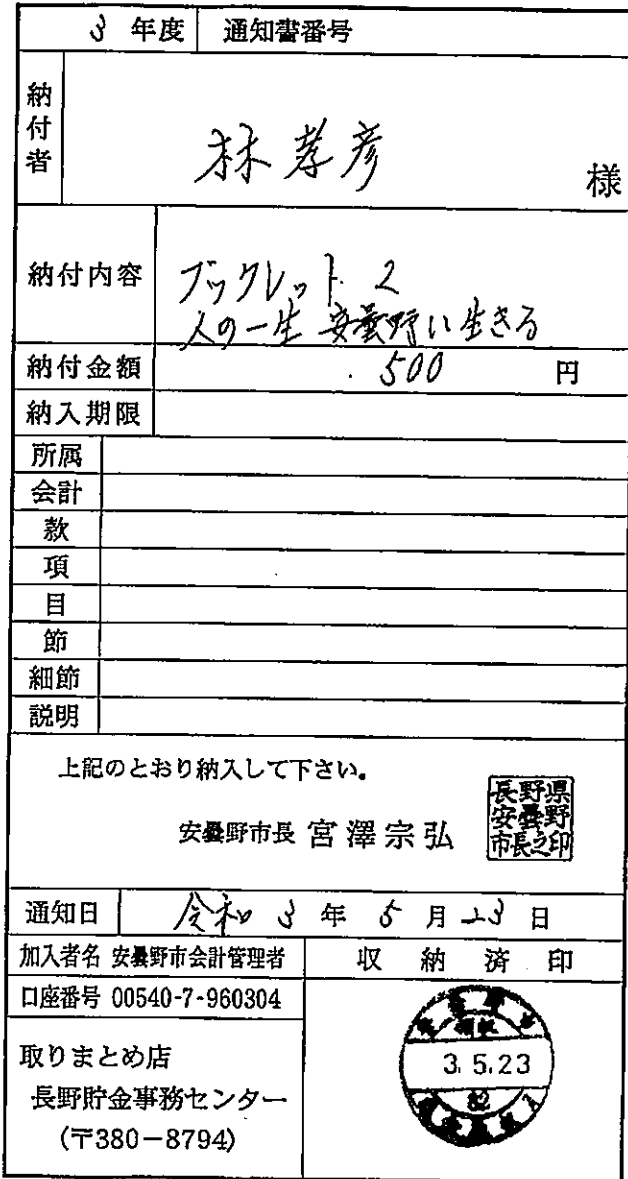 3 年度 通知書番号
納付者 林孝彦 様
納付内容 ブックレット 2
人の一生 安曇野に生きる
納付金額 500 円
納入期限
所属
会計
款
項
目
節
細節
説明
上記のとおり納入して下さい。
安曇野市長 宮澤宗弘
長野県
安曇野
市長之印
通知日 令和 3 年 5 月 23 日
加入者名 安曇野市会計管理者 収納済印
口座番号 00540-7-960304
領収
3.5.23
82
取りまとめ店
長野貯金事務センター
(〒380-8794)